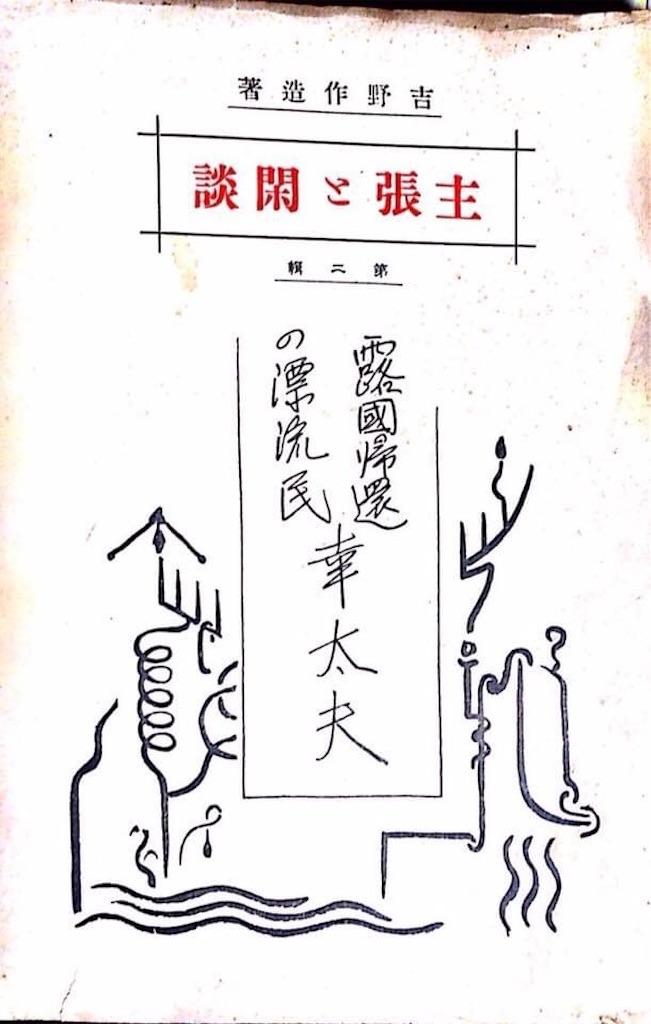 吉野作造著
主張と閑談
第二輯
露國帰還
の漂流民
幸太夫